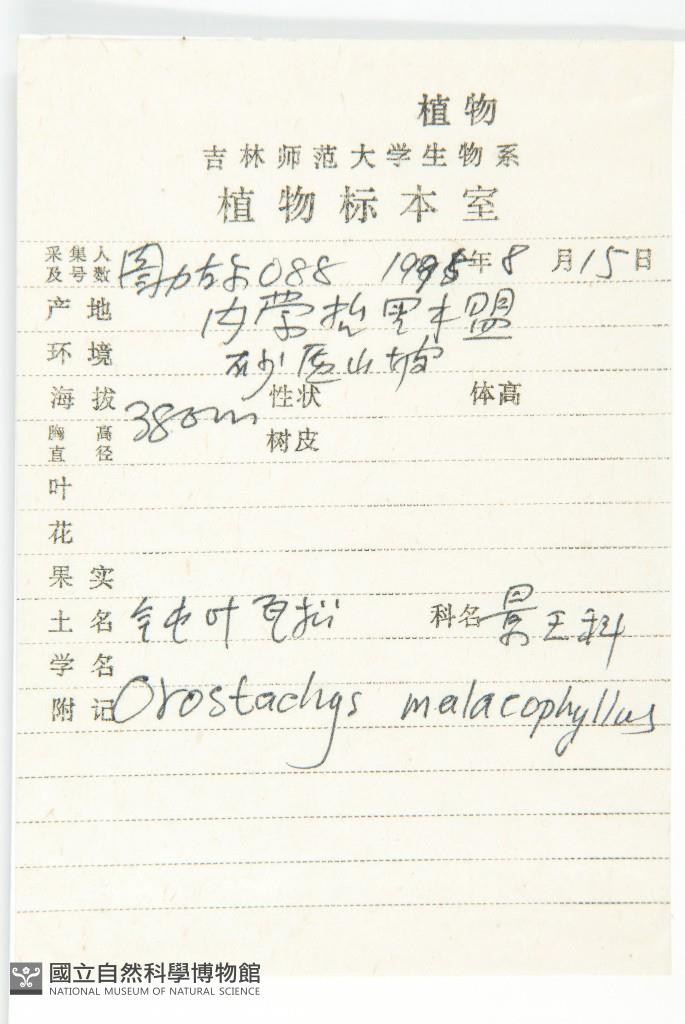 植物
吉林师范大学生物系
植物标本室
采集人及号数 088 1995年8月15日
产地 内蒙哲里木盟
环境 砂质山坡
海拔 380m 性状 体高
胸高直径 树皮
叶
花
果实
土名 钝叶瓦松 科名 景天科
学名
附记 Orostachys malacophyllus
國立自然科學博物館
NATIONAL MUSEUM OF NATURAL SCIENCE